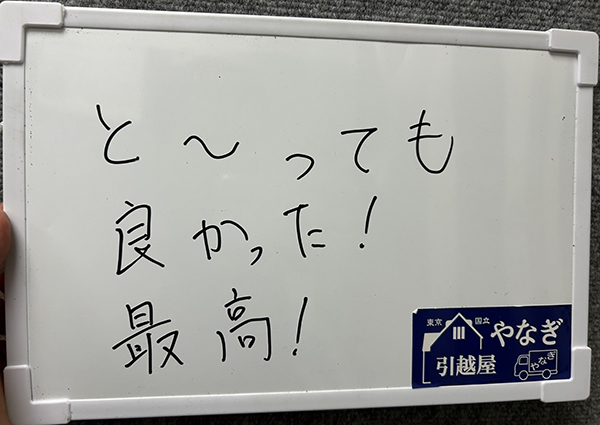 と～っても
良かった！
最高！
東京 国立
やなぎ
引越屋
やなぎ